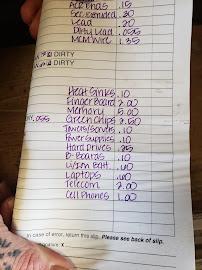 ACR Ends .15
Sec. Extruded .30
Lead .20
Dirty Lead .055
MCM Wire 1.35
DIRTY
DIRTY
Heat Sinks .10
Finger Board 2.00
Memory 5.00
Green Chips 2.50
.055
Towers/Servers .10
Power Supplies .10
Hard Drives .25
B-Boards .10
Li/Ion Batt. .40
Laptops .40
Telecom 2.00
Cell Phones 1.00
In case of error, return this slip. Please see back of slip.
Signature: x